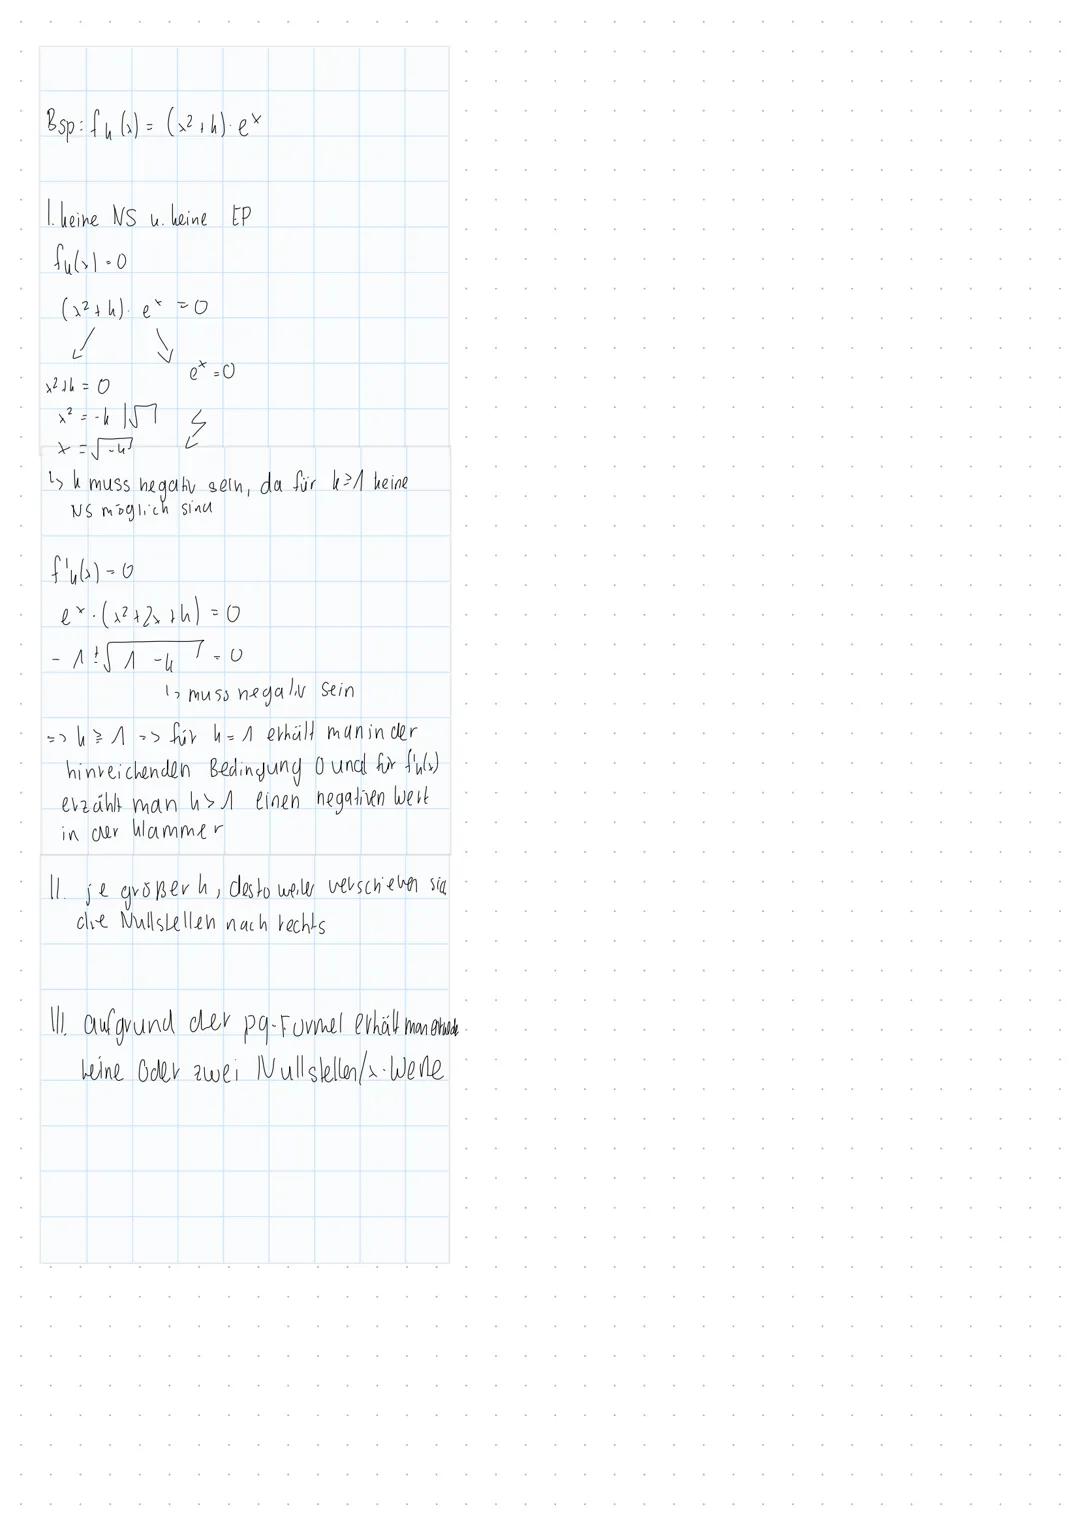 Bsp: fk(x) = (x²+k)·e^x
I. keine NS u. keine EP
fk(x) = 0
(x²+k)·e^x = 0
e^x = 0
x²+k = 0
x² = -k |√
x = √-k
↳ k muss negativ sein, da für k≥1 keine
NS möglich sind
f'k(x) = 0
e^x·(x²+2x+k) = 0
-1±√1-k = 0
↳ muss negativ sein
=> k≥1 => für k=1 erhält man in der
hinreichenden Bedingung 0 und für f'k(x)
erzählt man k>1 einen negativen Wert
in der Klammer
II. je größer k, desto weiter verschieben sich
die Nullstellen nach rechts
III. aufgrund der pq-Formel erhält man
keine oder zwei Nullstellen/x-Werte